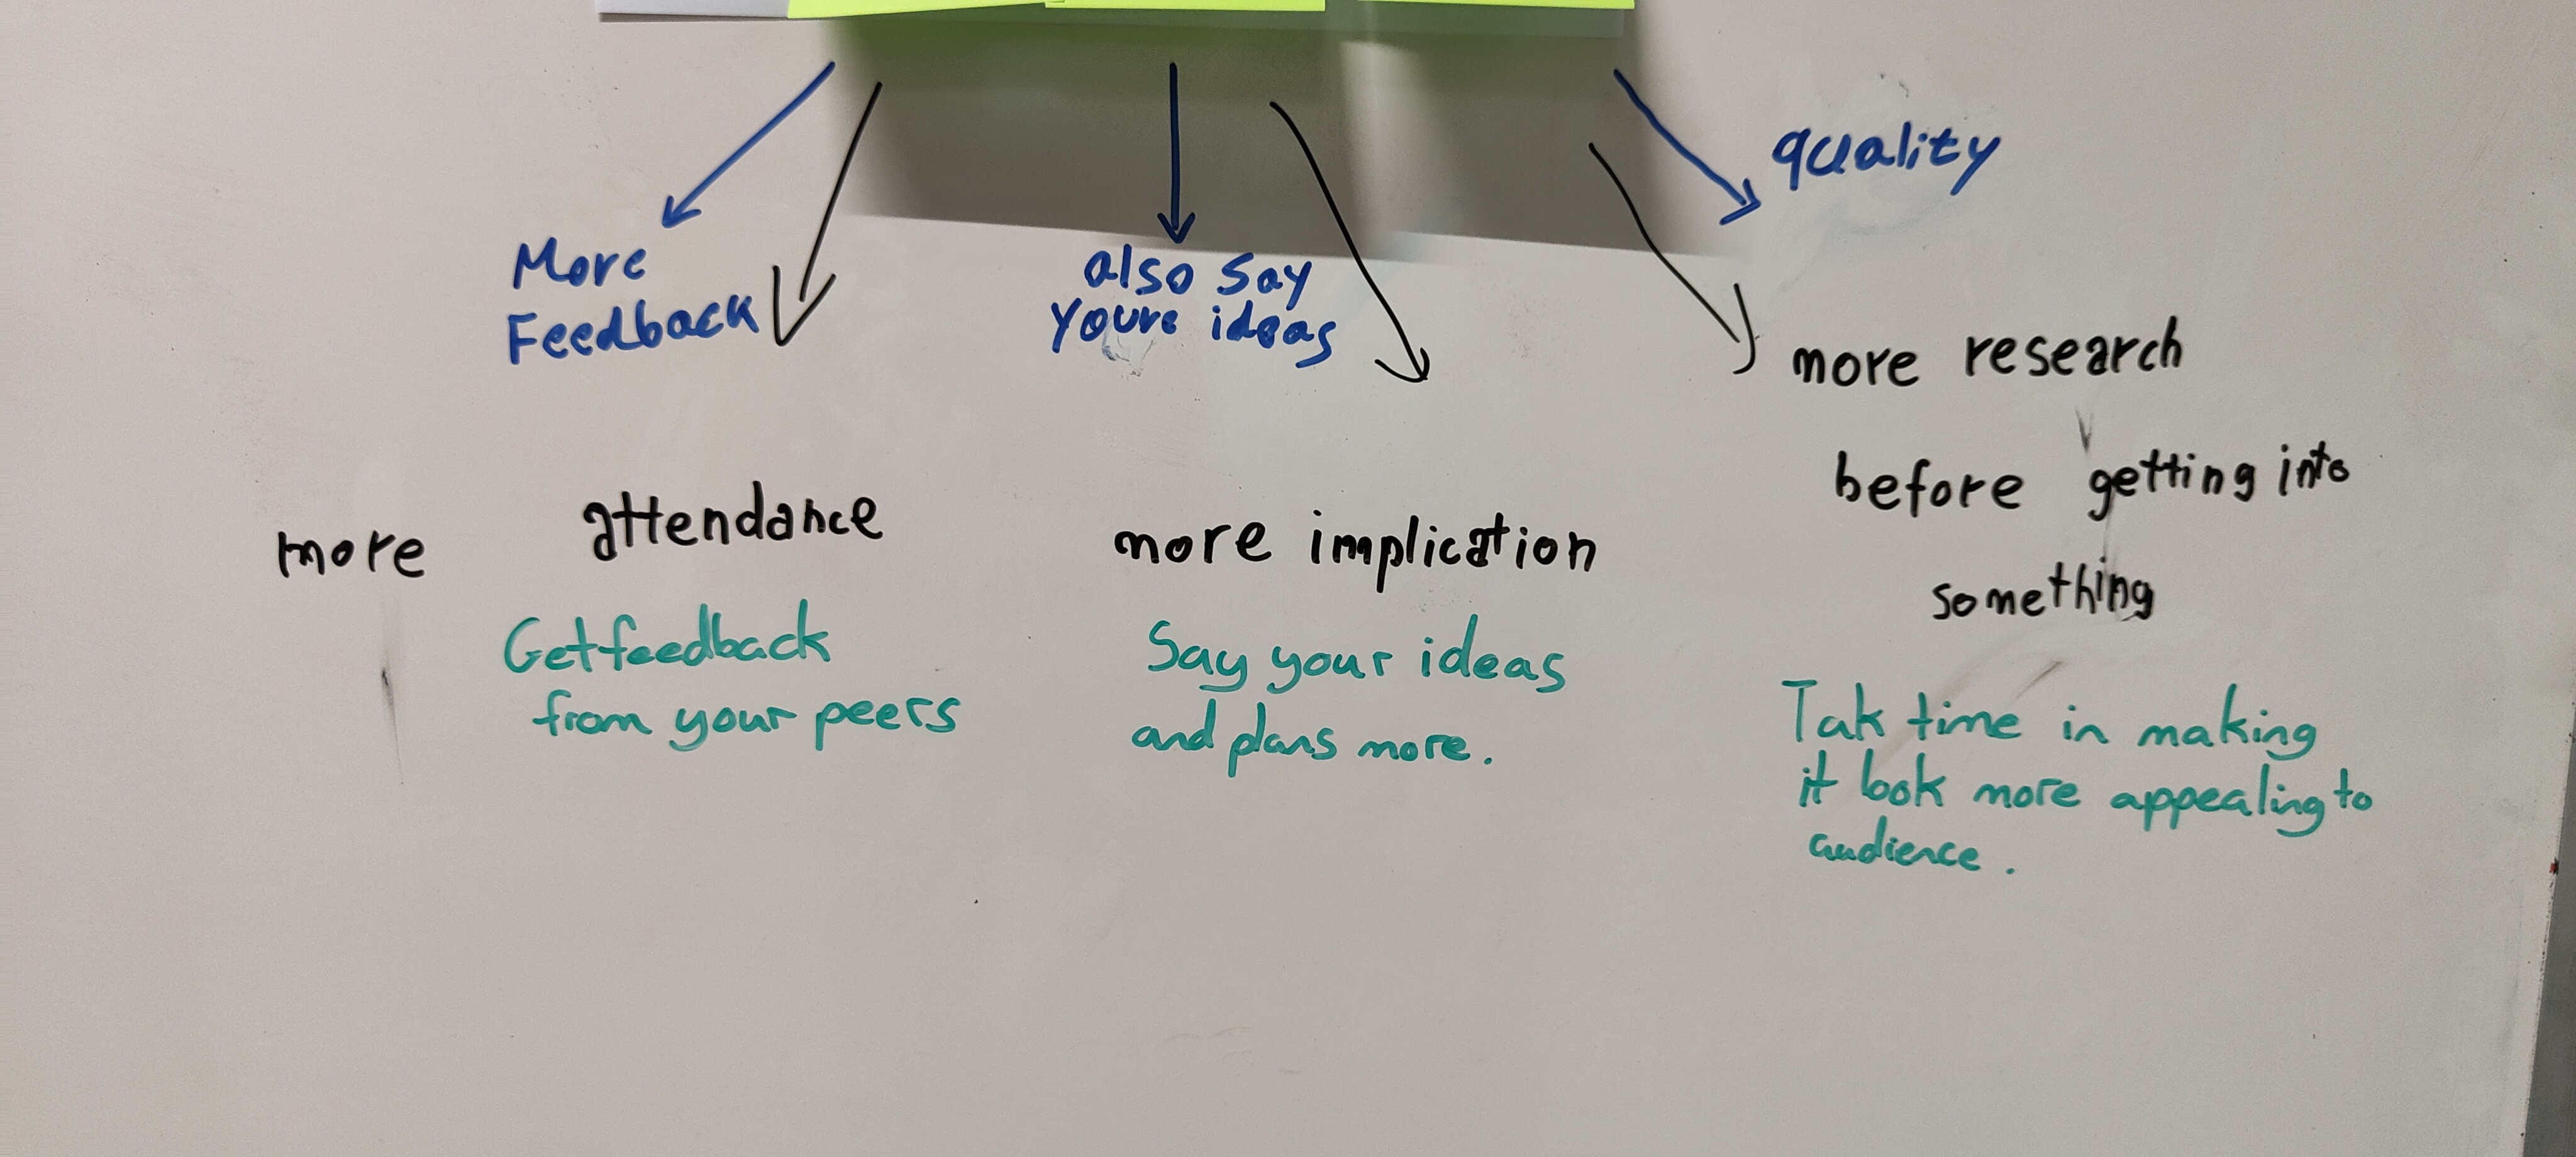 More
Feedback
also say
youre ideas
quality
more attendance
more implication
more research
before getting into
something
Get feedback
from your peers
Say your ideas
and plans more.
Tak time in making
it look more appealing to
audience.